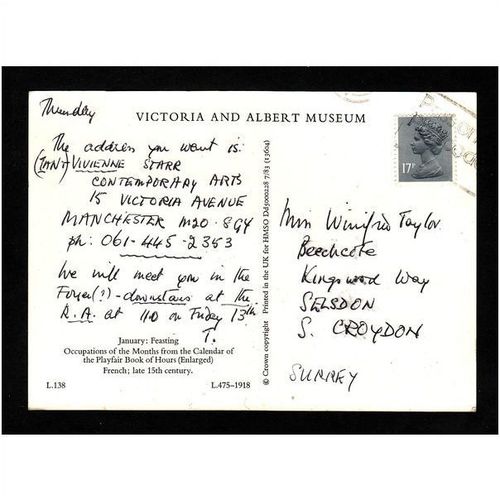 Thursday
VICTORIA AND ALBERT MUSEUM
The address you want is:
(IAN & VIVIENNE STARR
CONTEMPORARY ARTS
15 VICTORIA AVENUE
MANCHESTER M20 · 8GY
ph: 061-445-2353
We will meet you in the
Foyer(?) - downstairs at the
R.A. at 11.0 on Friday 13th
T.
January: Feasting
Occupations of the Months from the Calendar of
the Playfair Book of Hours (Enlarged)
French; late 15th century.
L.138
L.475-1918
© Crown copyright Printed in the UK for HMSO Dd5000228 7/83 (13604)
17P
Miss Winifred Taylor
Beechcote
Kingswood Way
SELSDON
S. CROYDON
SURREY